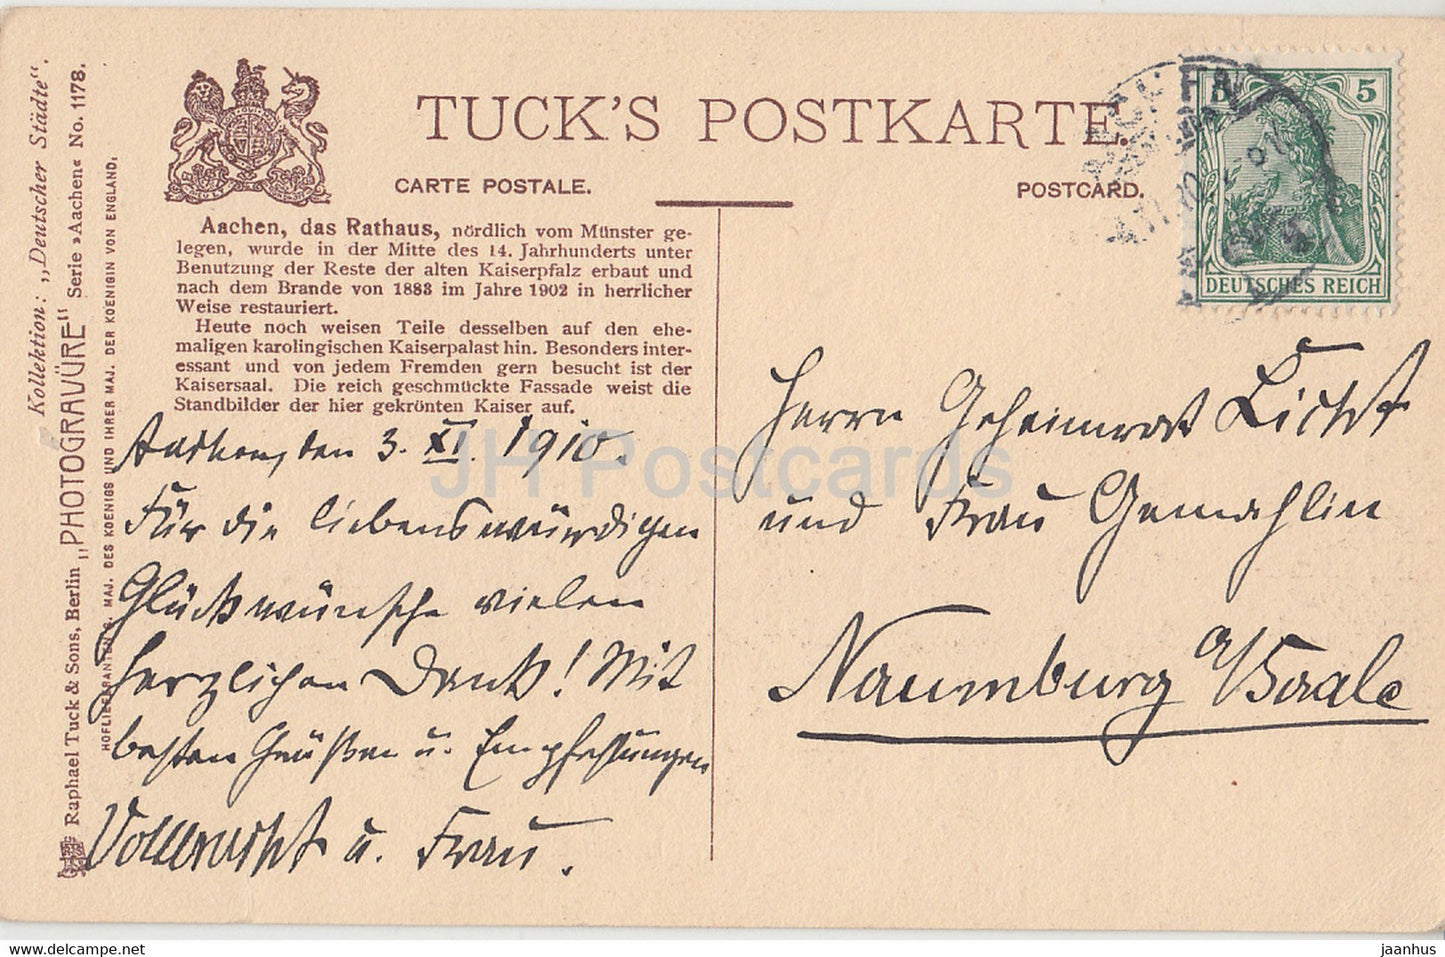 Kollektion: „Deutscher Städte“.
Raphael Tuck & Sons, Berlin „PHOTOGRAVÜRE“ Serie »Aachen« No. 1178.
HOFLIEFERANTEN S. MAJ. DES KOENIGS UND IHRER MAJ. DER KOENIGIN VON ENGLAND.
TUCK'S POSTKARTE.
CARTE POSTALE.
POSTCARD.
5
DEUTSCHES REICH
Aachen, das Rathaus, nördlich vom Münster ge-
legen, wurde in der Mitte des 14. Jahrhunderts unter
Benutzung der Reste der alten Kaiserpfalz erbaut und
nach dem Brande von 1883 im Jahre 1902 in herrlicher
Weise restauriert.
Heute noch weisen Teile desselben auf den ehe-
maligen karolingischen Kaiserpalast hin. Besonders inter-
essant und von jedem Fremden gern besucht ist der
Kaisersaal. Die reich geschmückte Fassade weist die
Standbilder der hier gekrönten Kaiser auf.
Aachen, den 3. XI. 1910.
Für die liebenswürdigen
Glückwünsche vielen
herzlichen Dank! Mit
besten Grüßen u. Empfehlungen
Vollbracht u. Frau.
Herrn Geheimrat Licht
und Frau Gemahlin
Naumburg a/Saale
JH Postcards
www.delcampe.net
jaanhus